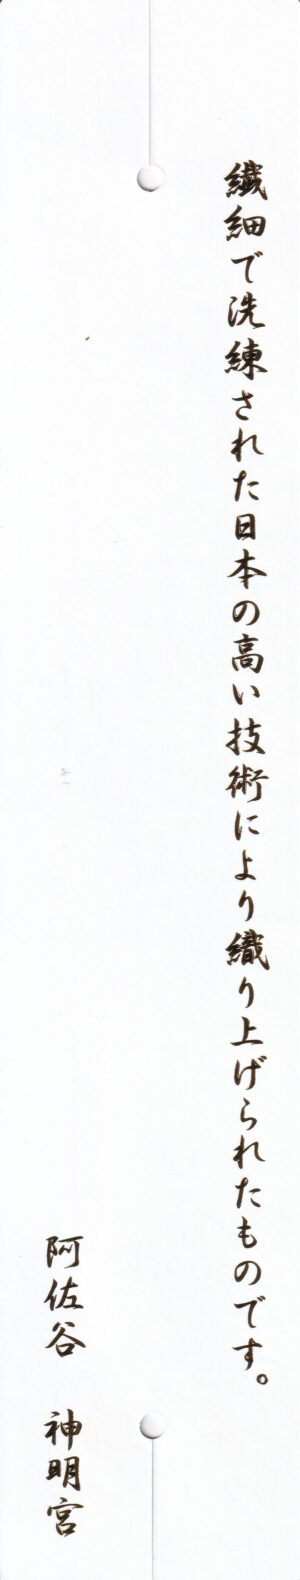 繊細で洗練された日本の高い技術により織り上げられたものです。
阿佐谷　神明宮